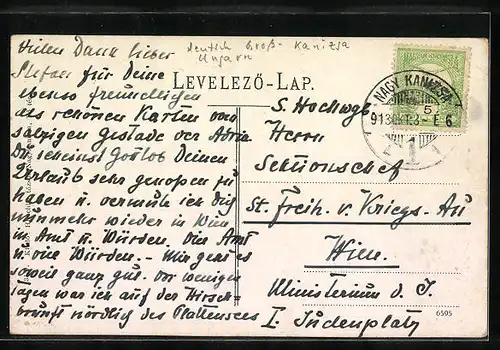 Vielen Dank lieber
Stefan für Deine
ebenso freundlichen
als schönen Karten vom
salzigen Gestade der Adria
Du scheinst Gottlob Deinen
Urlaub sehr genossen zu
haben u. vermute ich Dich
nunmehr wieder in Wien
in Amt u. Würden. Von Amt
u. Würden. – Mir geht es
soweit ganz gut. Vor wenigen
Tagen war ich auf der Hirsch-
brunft nördlich des Plattensees
deutsch Groß-Kanizsa
Ungarn
LEVELEZŐ-LAP.
NAGY KANIZSA
5
913 OKT. 3 - E 6
1
S. Hochwgb.
Herrn
Sektionschef
St. Freih. v. Kriegs-Au
Wien.
Ministerium d. I.
I. Judenplatz
6595